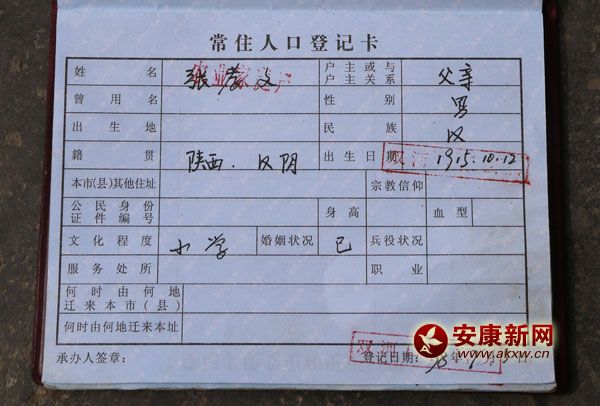 常住人口登记卡
姓名 张 户主或与户主关系 父亲
曾用名 性别 男
出生地 民族 汉
籍贯 陕西.汉阴 出生日期 1915.10.12
双河
本市(县)其他住址 宗教信仰
公民身份证件编号 身高 血型
文化程度 小学 婚姻状况 已 兵役状况
服务处所 职业
何时由何地迁来本市(县)
何时由何地迁来本址
双河
承办人签章: 登记日期: 年 月 日
安康新网
www.akxw.cn